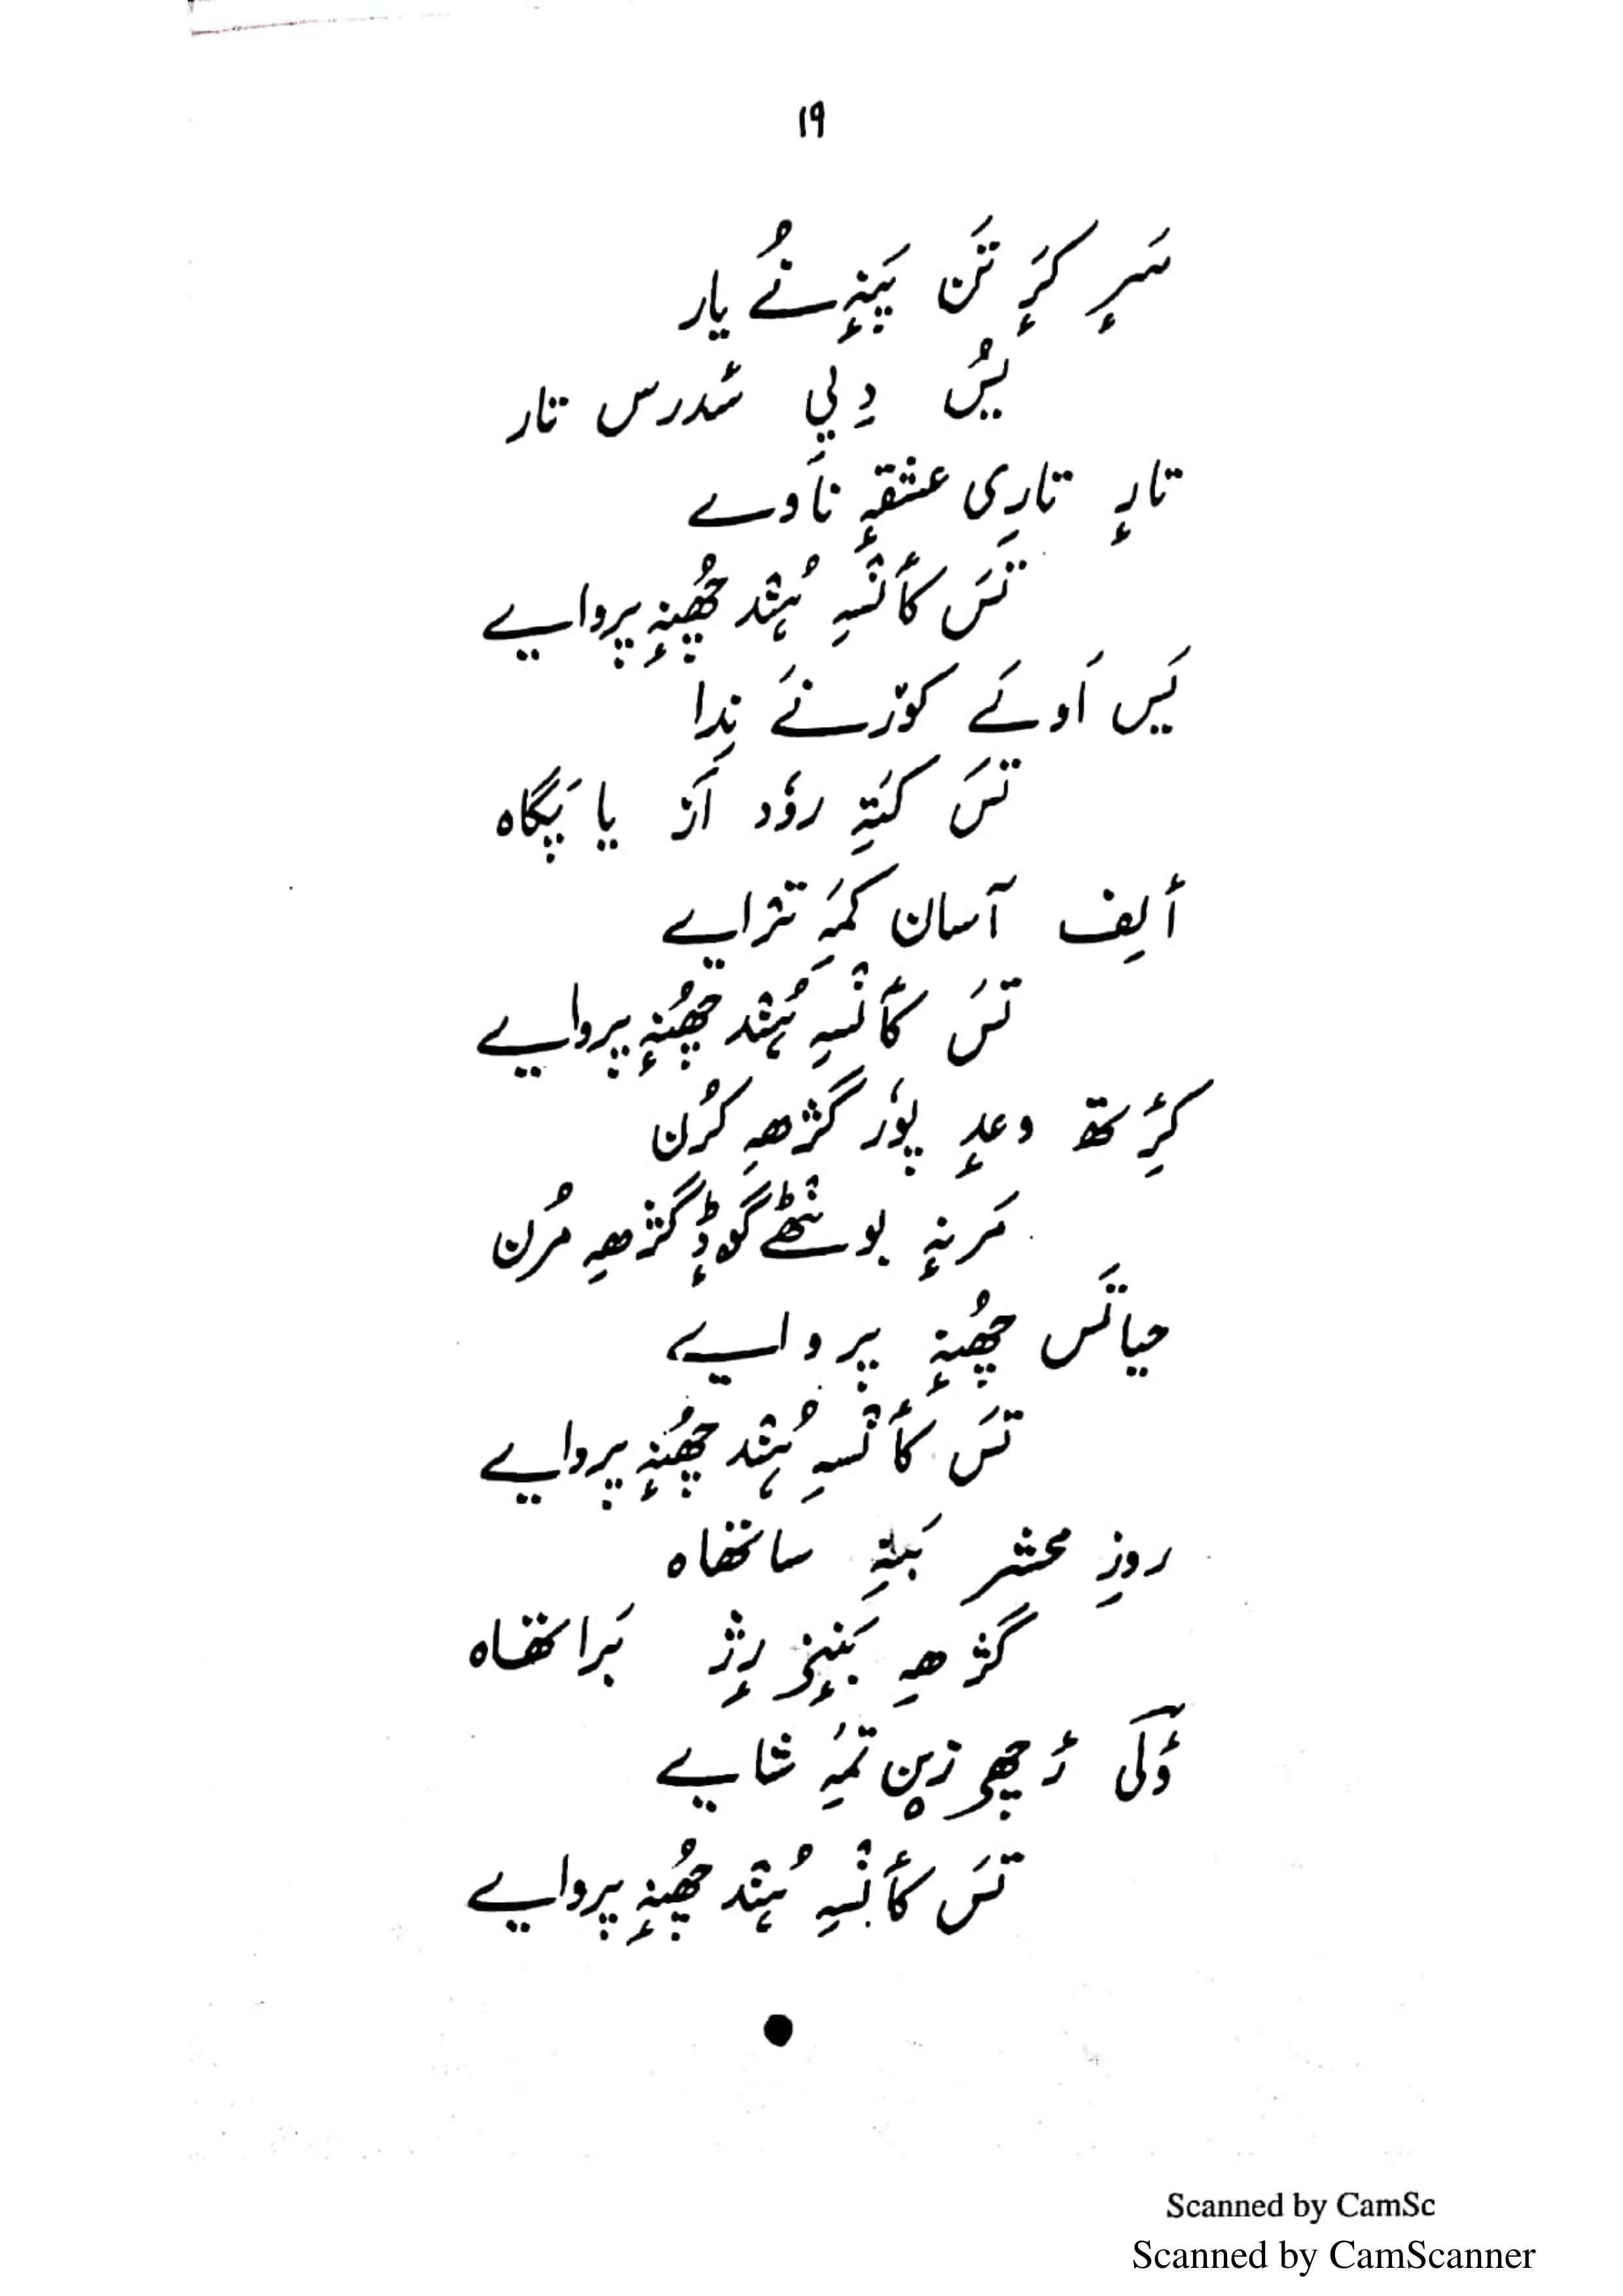 ۱۹
سَرٕ کرٕ تَن پَنٕہ نُے یار
یُس دِیِی سٔدرس تار
تارٕ تارِی عشقہٕ ناَوے
تَس کٲنٛسہِ ہُنٛد چھُنہٕ پروایے
یَس اَوکَے کوٚرنَے نِدا
تَس کَتہِ روٗد اَز یا پَگاہ
أ لِف آسان کَمہِ تراے
تَس کٲنٛسہِ ہُنٛد چھُنہٕ پروایے
کٔرِتھ وعدٕ پوٗر گژھہِ کرُن
مَرنہٕ بوٚنٹھے گوڈٕ گژھہِ مرُن
حیاتَس چھُنہٕ پروایے
تَس کٲنٛسہِ ہُنٛد چھُنہٕ پروایے
روزِ محشر بَتہِ ساتھاہ
گژھہِ بَنٕنۍ رٕژ بَراتھاہ
وٕکۍ رٔچھۍ زین تَمہِ شایے
تَس کٲنٛسہِ ہُنٛد چھُنہٕ پروایے
Scanned by CamSc
Scanned by CamScanner